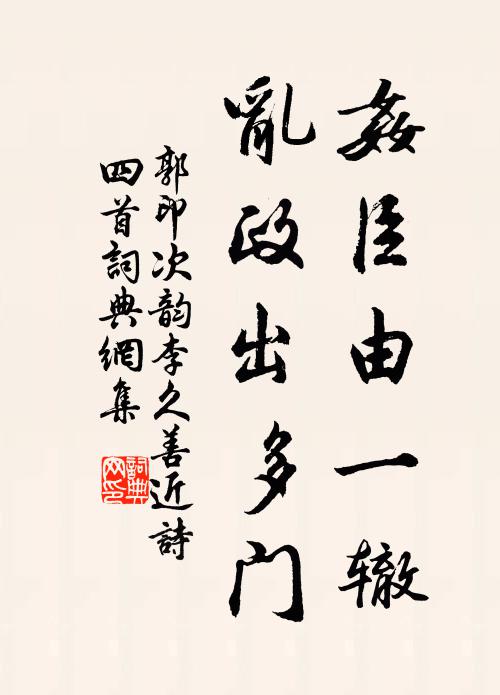 姦臣由一辙
亂政出多门
郭印次韵李久善近詩
四首詞典網集
詞典网印